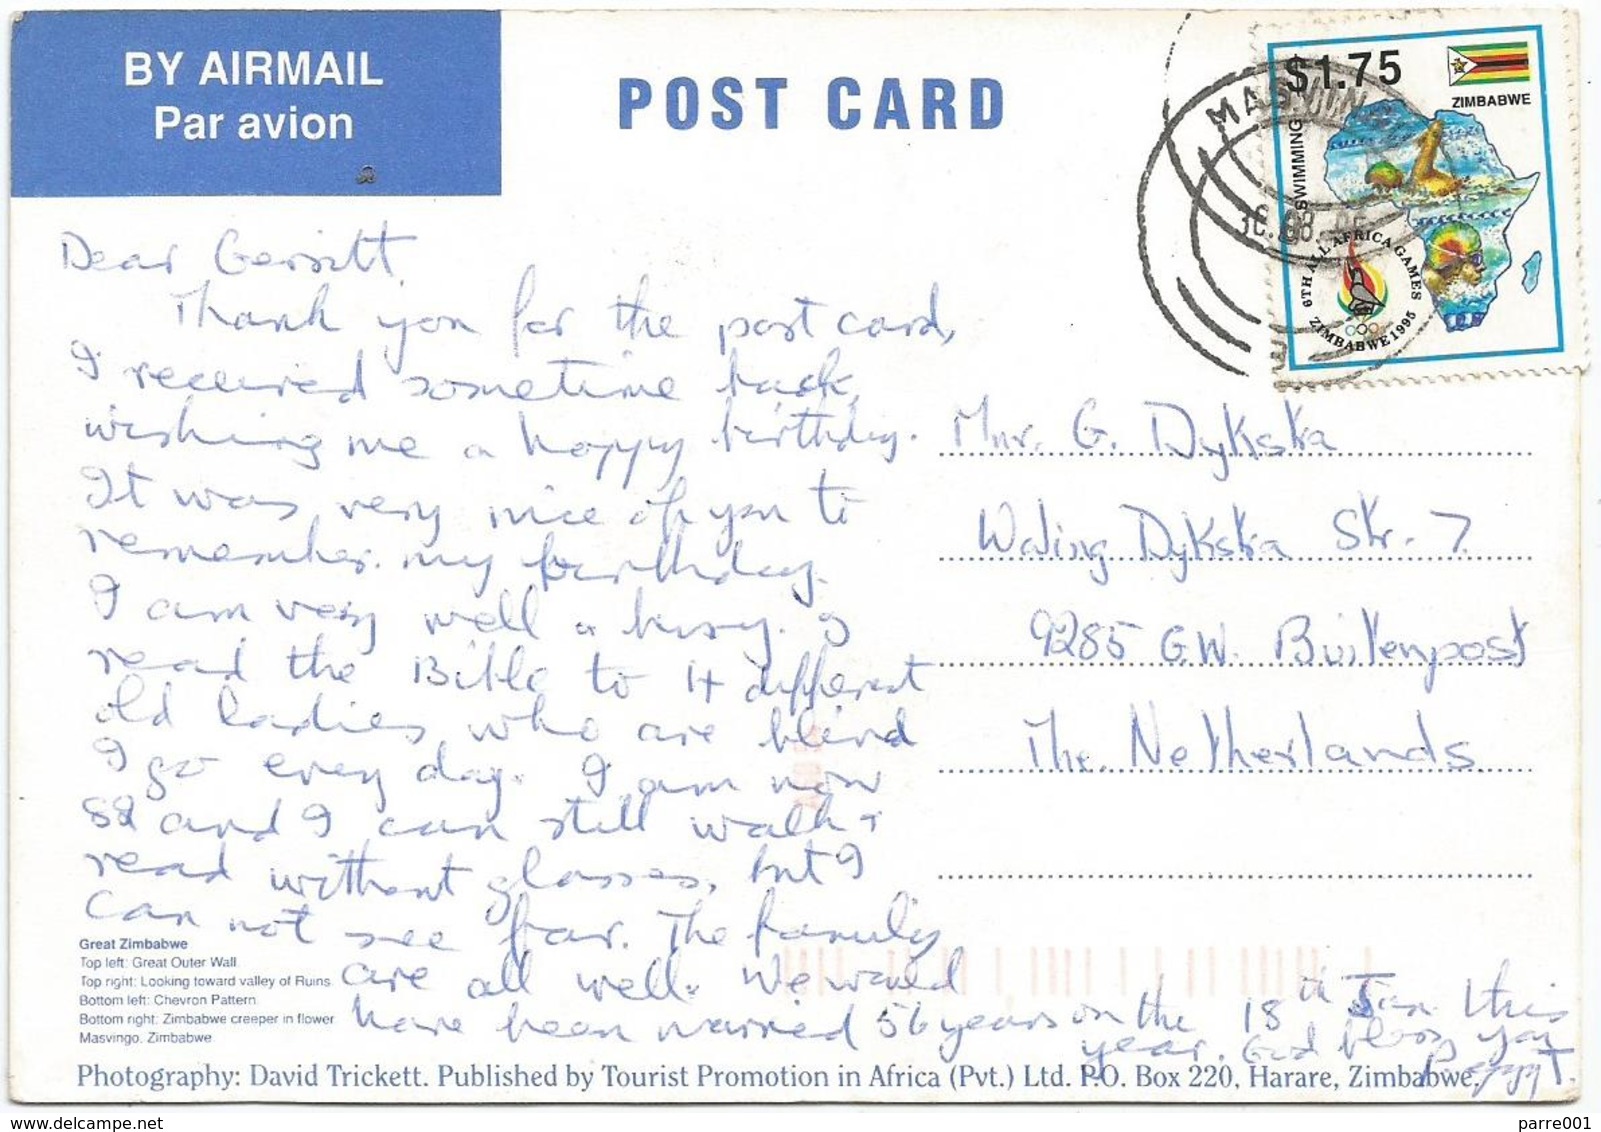 BY AIRMAIL
Par avion
POST CARD
$1.75
ZIMBABWE
SWIMMING
6TH ALL AFRICA GAMES
ZIMBABWE 1995
Dear Gerritt
Thank you for the post card,
I received sometime back,
wishing me a happy birthday.
It was very nice of you to
remember my birthday.
I am very well & busy. I
read the Bible to 4 different
old ladies who are blind
I go every day. I am now
88 and I can still walk +
read without glasses, but I
can not see far. The family
are all well. We would
have been married 56 years on the 18th Jan this
year. God bless you
Mnr. G. Dykstra
Waling Dykstra Str. 7
9285 G.W. Buitenpost
The Netherlands
Great Zimbabwe
Top left: Great Outer Wall
Top right: Looking toward valley of Ruins
Bottom left: Chevron Pattern
Bottom right: Zimbabwe creeper in flower
Masvingo, Zimbabwe
Photography: David Trickett. Published by Tourist Promotion in Africa (Pvt.) Ltd. P.O. Box 220, Harare, Zimbabwe.
www.delcampe.net
parre001